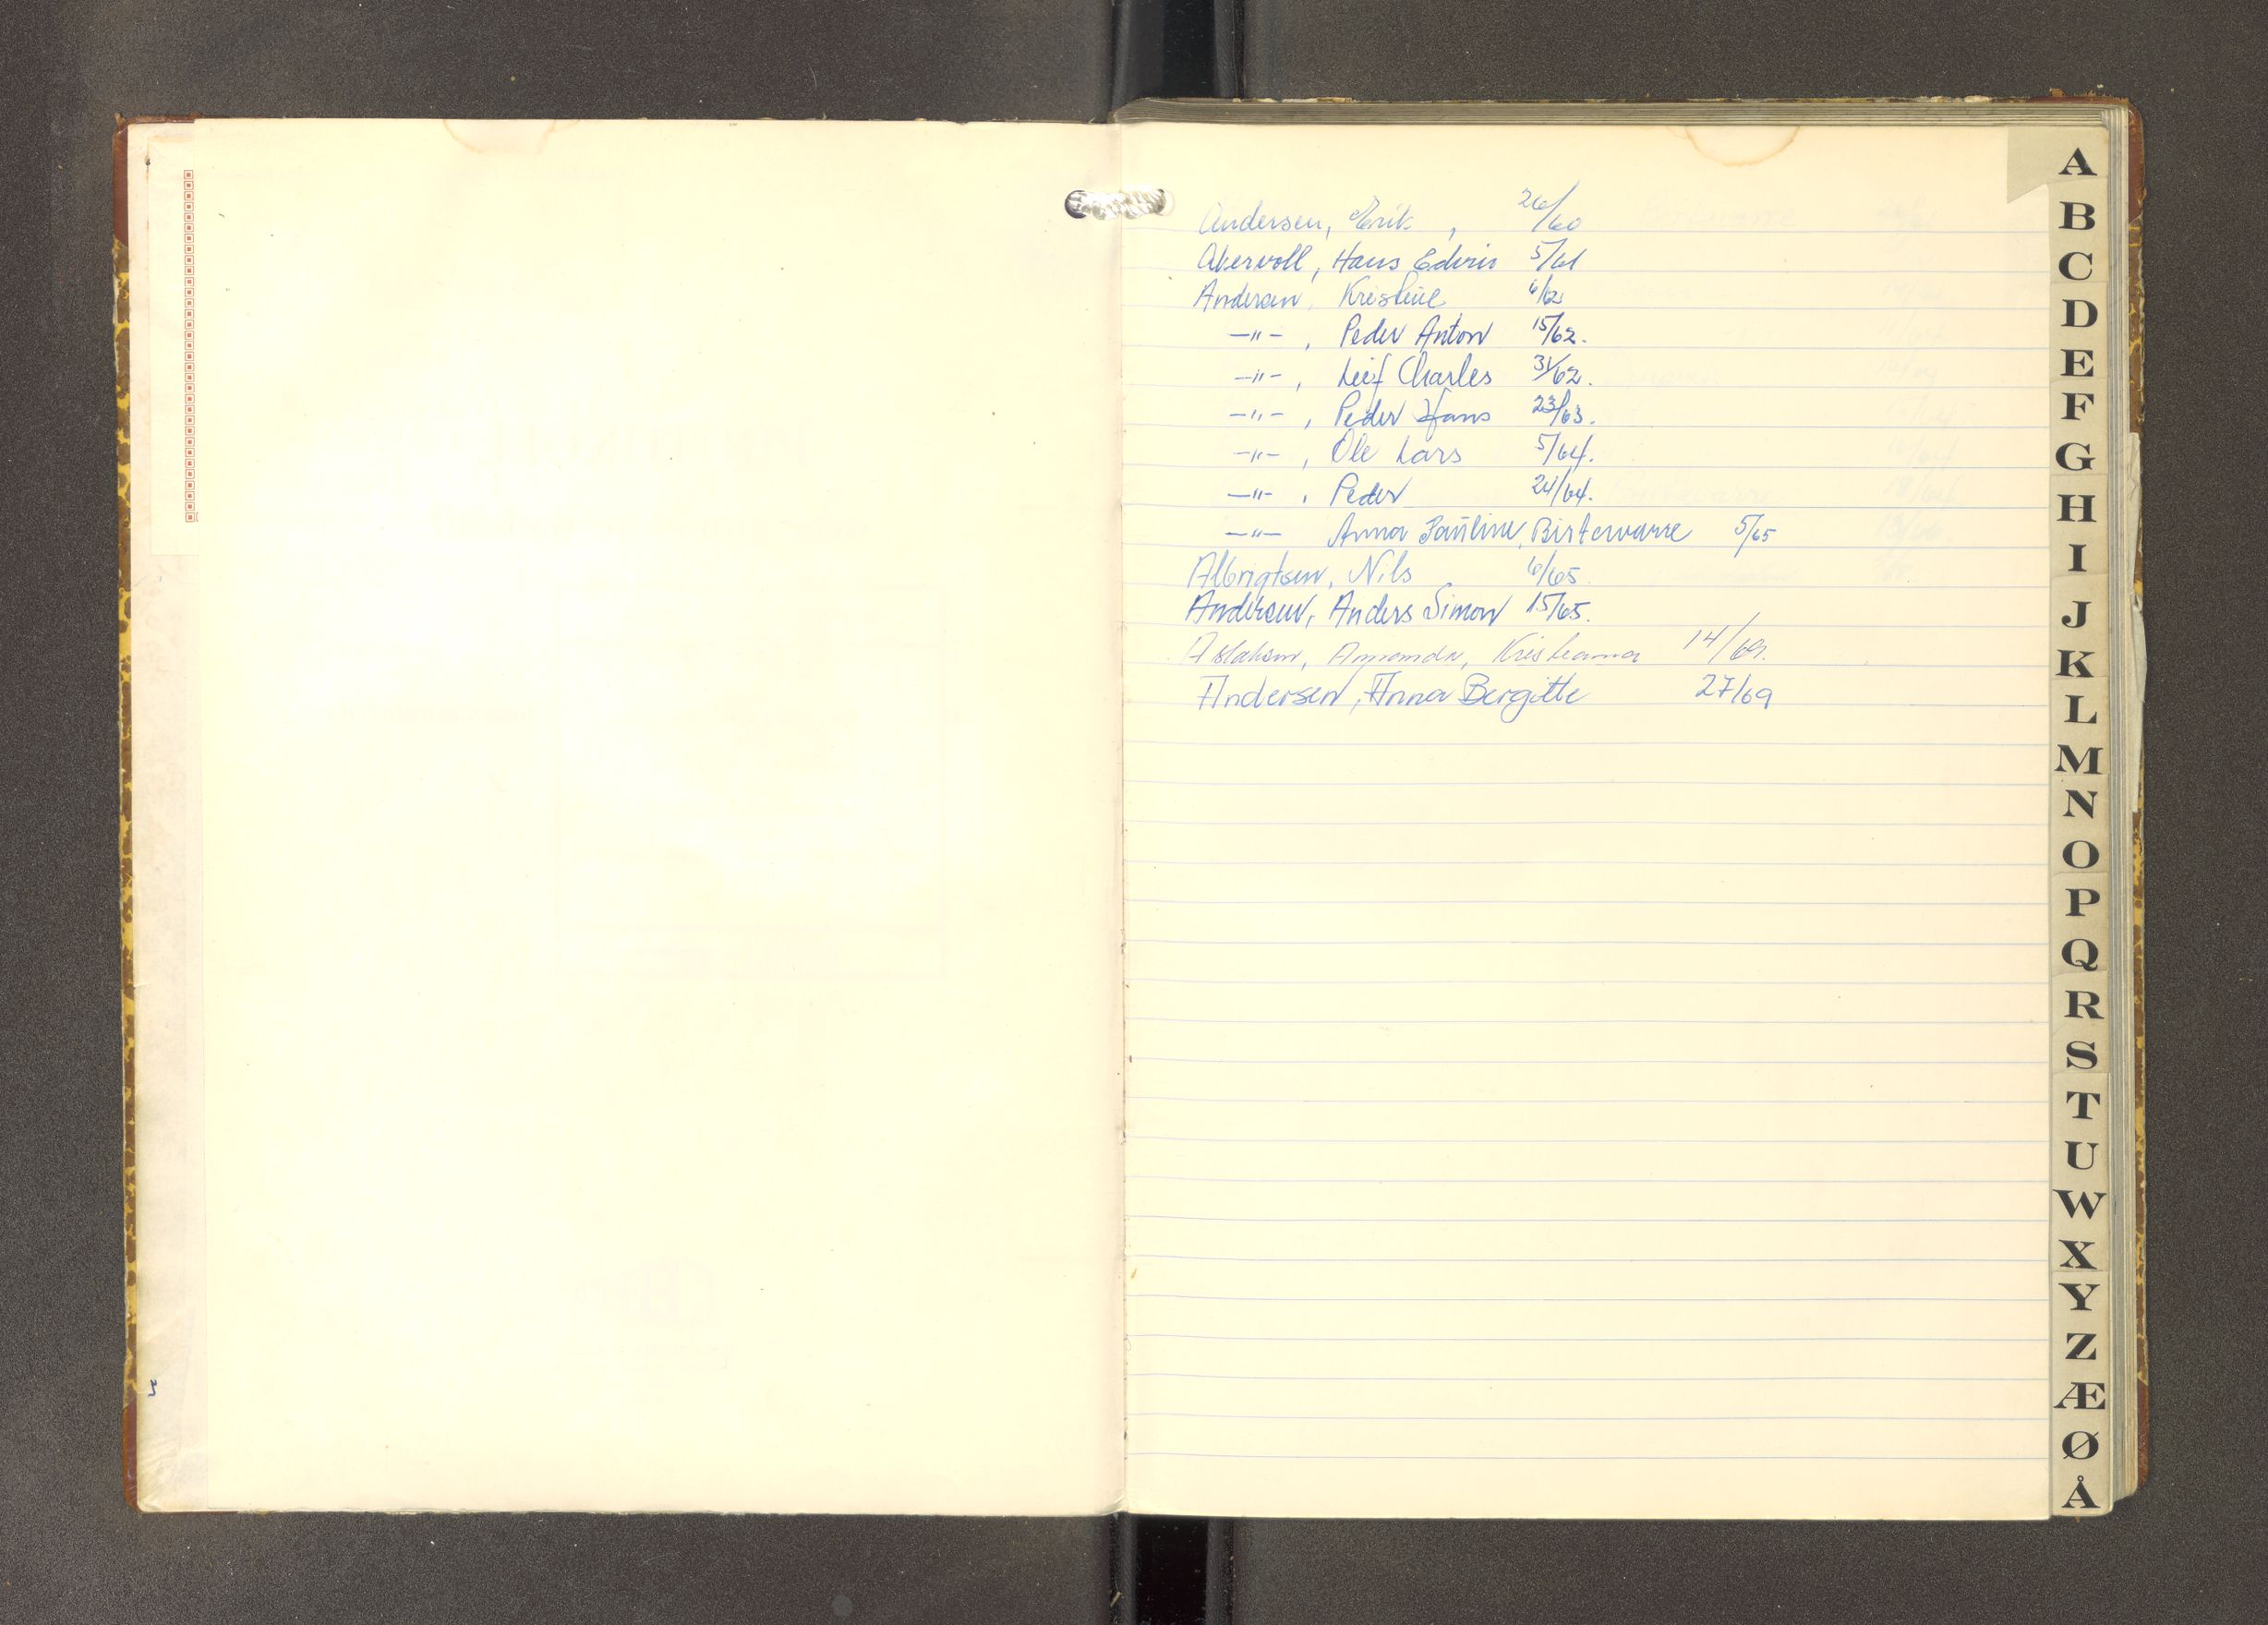 Andersen, Erik , 26/60
Akervoll, Hans Edvin 5/61
Andersen, Kristine 6/62
—"— , Peder Anton 15/62.
—"— , Leif Charles 31/62.
—"— , Peder Hans 23/63.
—"— , Ole Lars 5/64.
—"— , Peder 24/64.
—"— Anna Pauline, Bistervarre 5/65
Albrigtsen, Nils 6/65
Andersen, Anders Simon 15/65.
Aslaksen, Amanda, Kristianna 14/69.
Andersen, Anna Bergitte 27/69
A
B
C
D
E
F
G
H
I
J
K
L
M
N
O
P
Q
R
S
T
U
W
X
Y
Z
Æ
Ø
Å